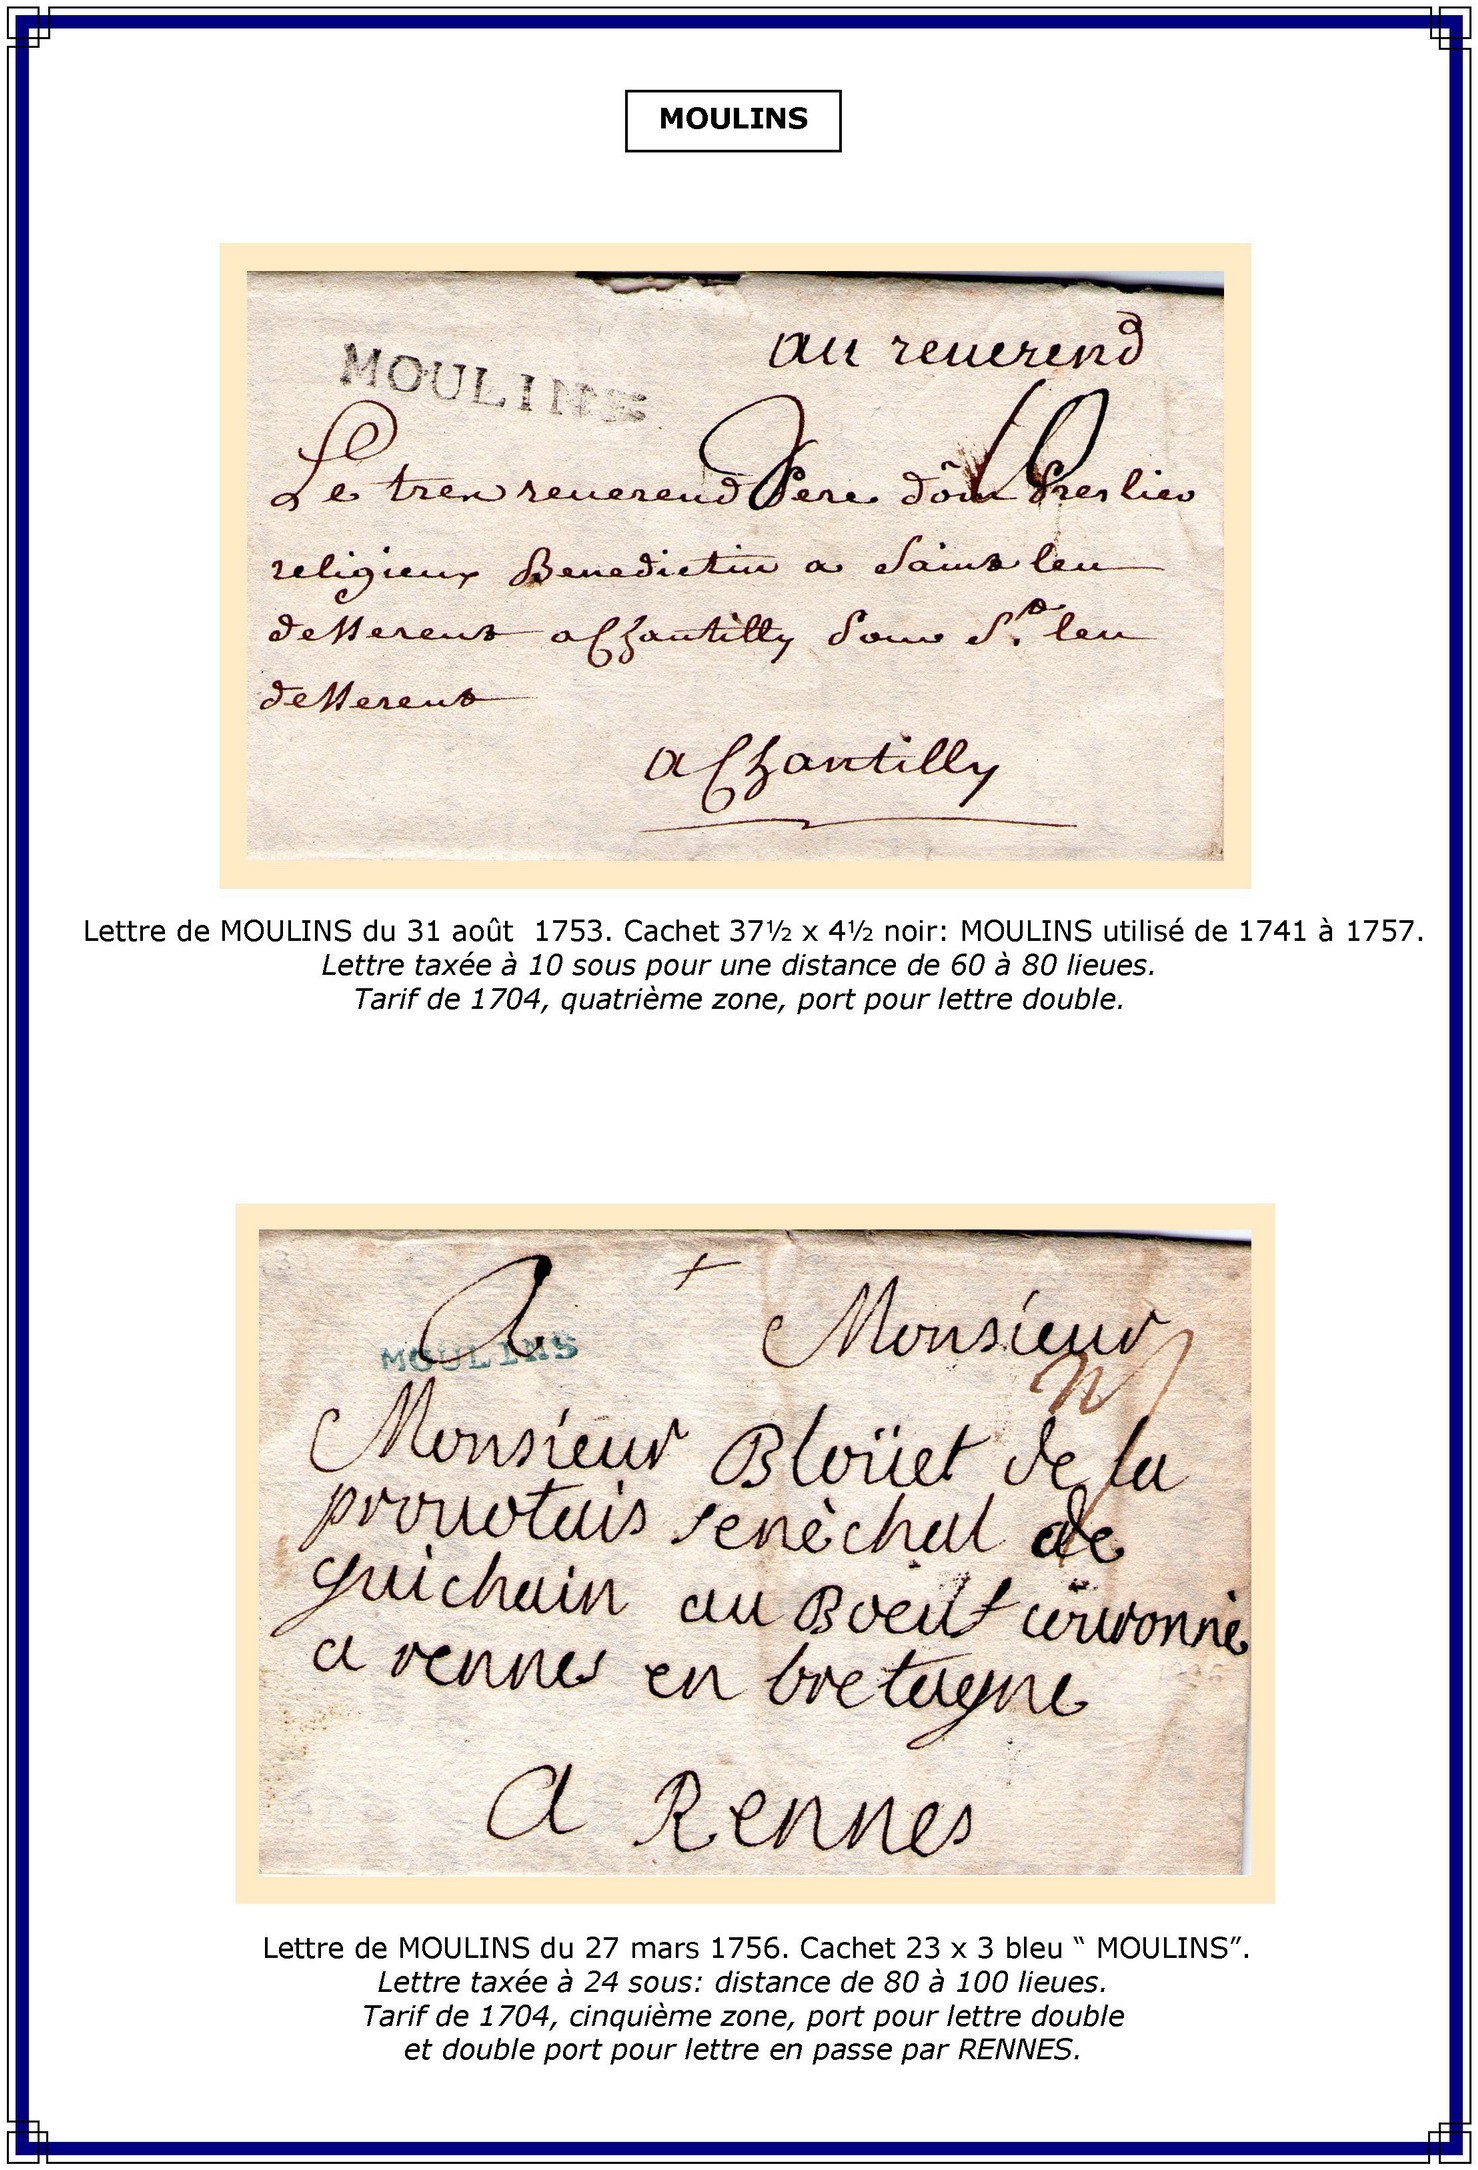 MOULINS
MOULINS
au reuerend
Le tres reuerend Pere dôm
religieux Benedictin a Saint leu
desserent a Chantilly pour St. leu
desserent
a Chantilly
Lettre de MOULINS du 31 août 1753. Cachet 37½ x 4½ noir: MOULINS utilisé de 1741 à 1757.
Lettre taxée à 10 sous pour une distance de 60 à 80 lieues.
Tarif de 1704, quatrième zone, port pour lettre double.
A Monsieur
MOULINS
Monsieur Bloüet de la
prouotais senèchal de
guichain au Boeuf couronnè
a rennes en bretagne
A Rennes
Lettre de MOULINS du 27 mars 1756. Cachet 23 x 3 bleu “ MOULINS”.
Lettre taxée à 24 sous: distance de 80 à 100 lieues.
Tarif de 1704, cinquième zone, port pour lettre double
et double port pour lettre en passe par RENNES.